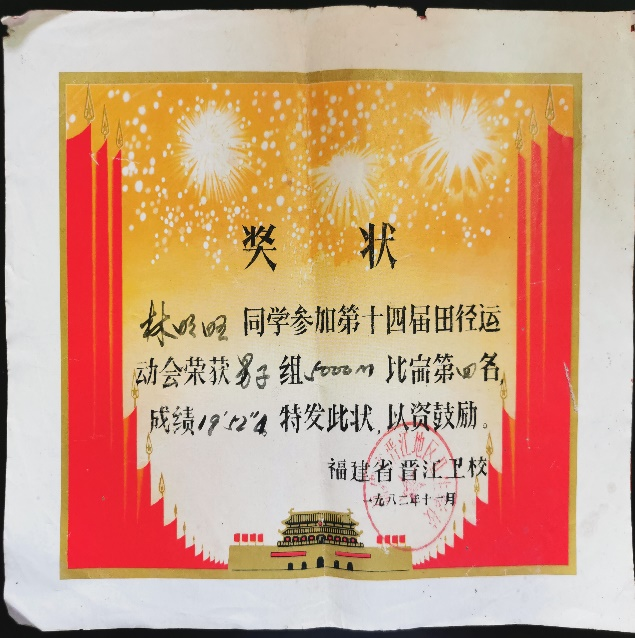 奖状
林明旺同学参加第十四届田径运
动会荣获男子组5000m比崗第四名,
成绩19'52"4特发此状,以资鼓励。
福建省晋江卫校
一九八二年十一月